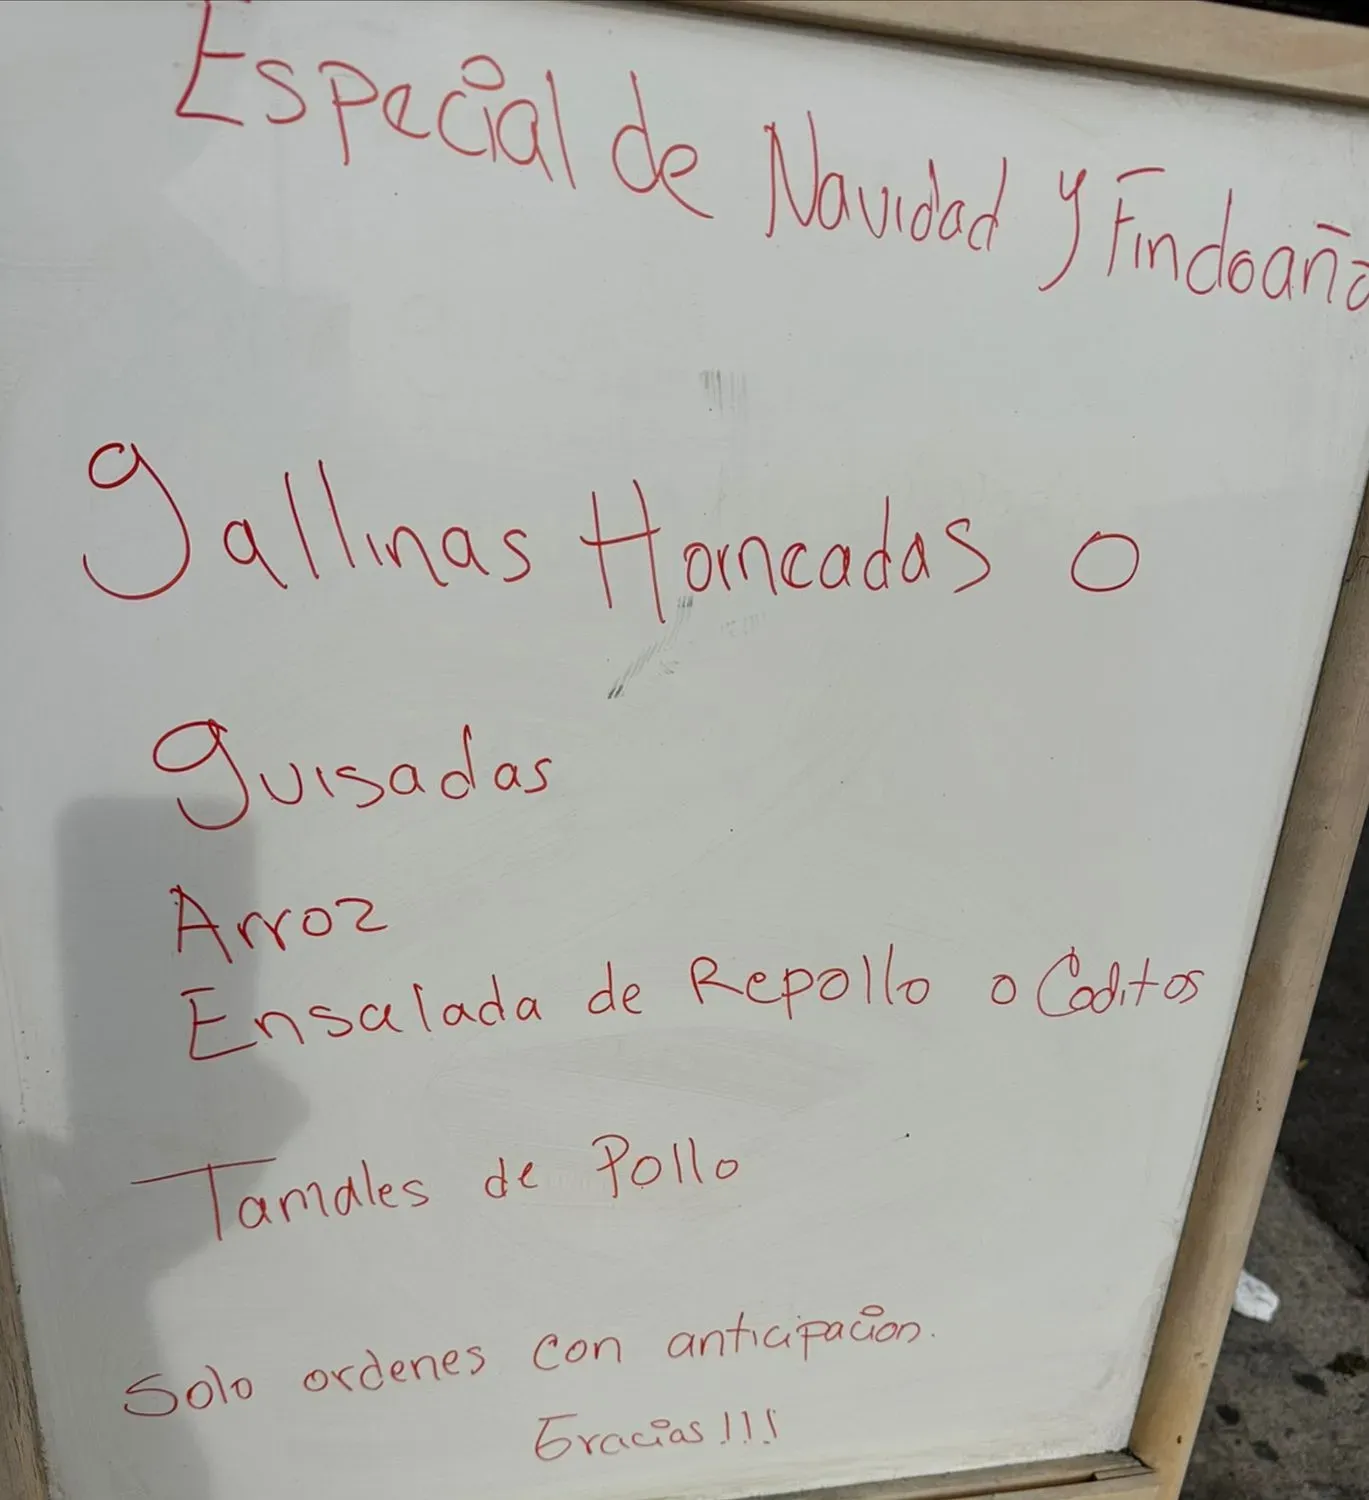 Especial de Navidad y Findoaño
gallinas Horneadas o
guisadas
Arroz
Ensalada de Repollo o Coditos
Tamales de Pollo
Solo ordenes con anticipacion.
Gracias!!!